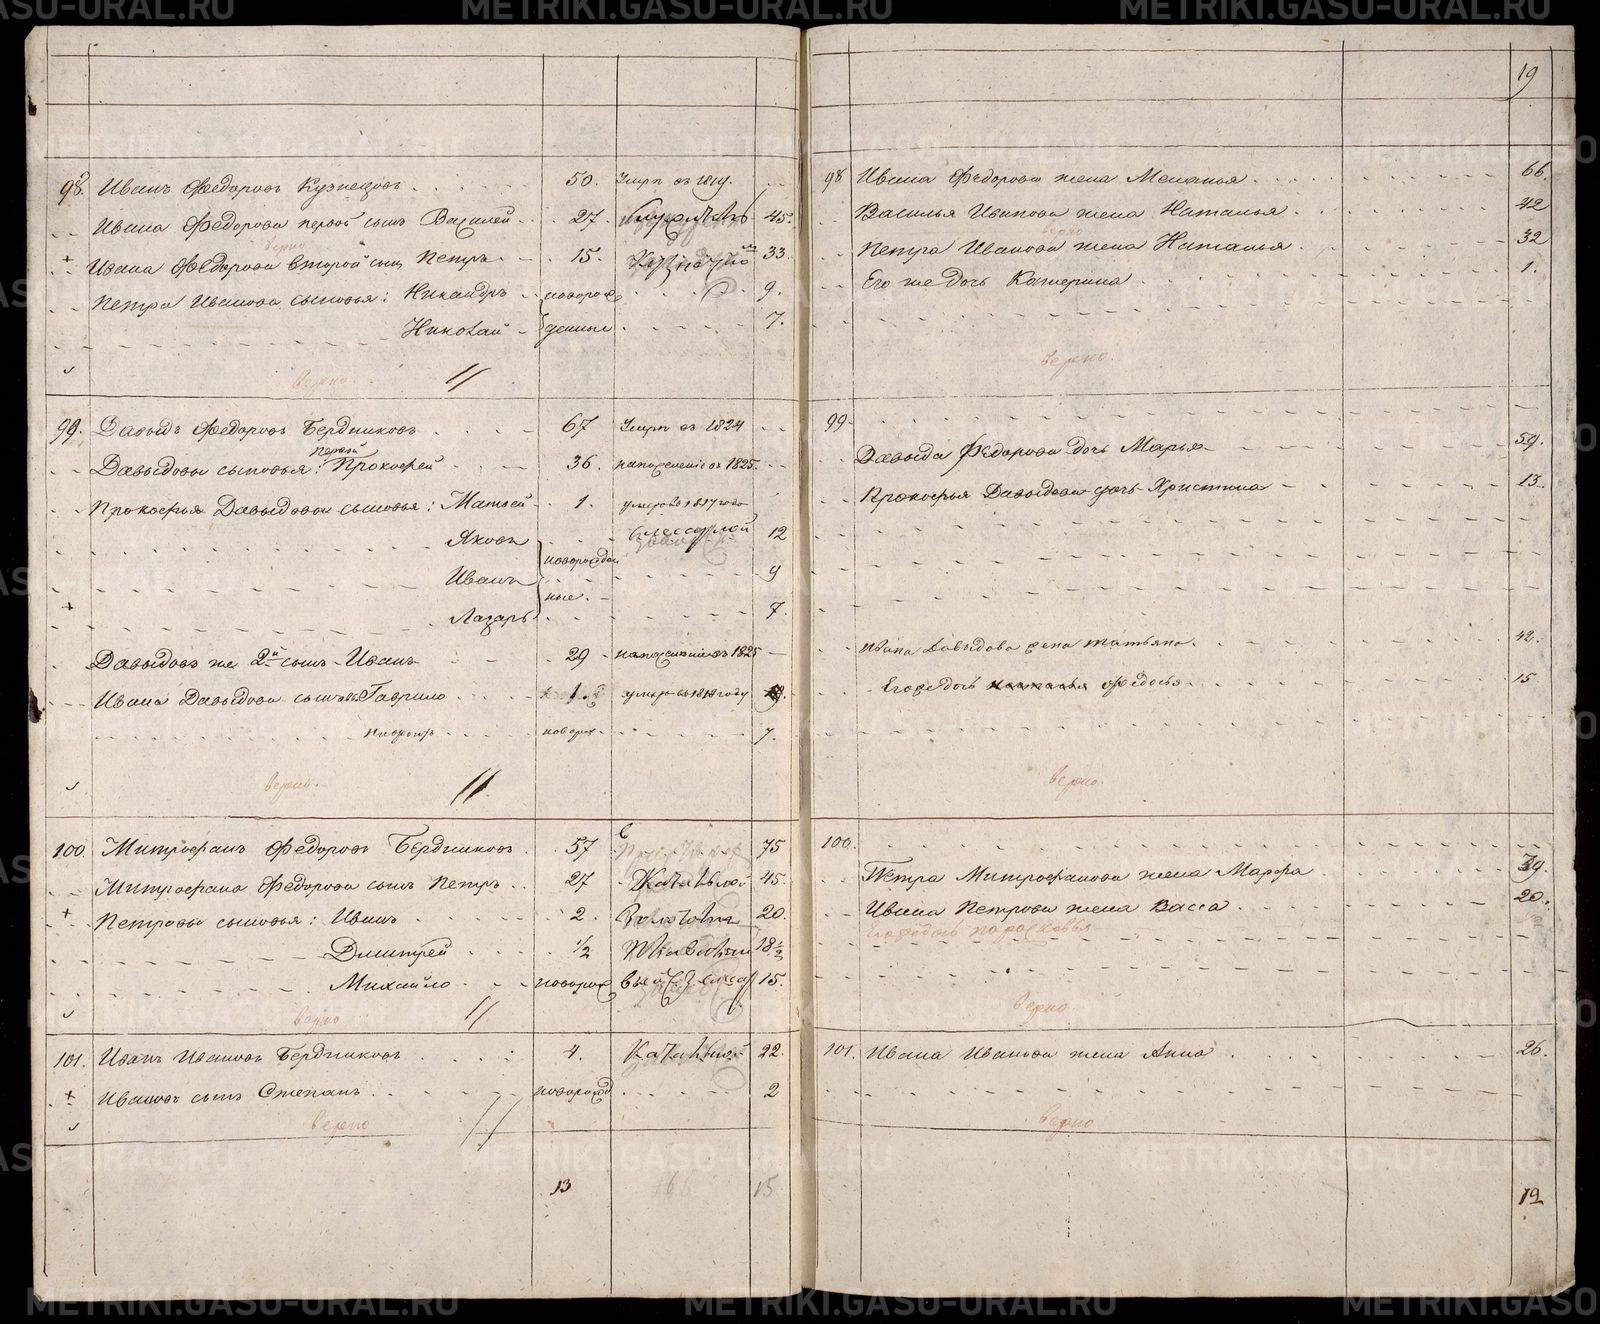 METRIKI.GASO-URAL.RU
98. Иванъ Федоровъ Кузнецовъ 50. Умрп въ 1819.
Ивана Федорова первой сынъ Василей 27. 45.
верно
Ивана Федорова второй сынъ Петръ 15. 33.
Петра Иванова сыновья: Никандръ новорож 9.
Николай денные 7.
верно.
99. Давыдъ Федоровъ Бердниковъ 67 Умрп въ 1824
первой
Давыдовы сыновья: Прокофей 36. на поселеніе въ 1825.
Прокофья Давыдова сыновья: Матвей 1. умер въ 1817 году
Яковъ 12
новорожден
Иванъ 9
ные.
Лазарь 7.
Давыдовъ же 2й сынъ Иванъ 29 на поселеніе въ 1825
Ивана Давыдова сынъ Гаврило 1. умер въ 1818 году
новорож 7.
верно.
100. Митрофанъ Федоровъ Бердниковъ 57 75
Митрофана Федорова сынъ Петръ 27 45.
Петровы сыновья: Иванъ 2. 20.
Дмитрей 1/2 18 1/2
Михайло новорож 15.
верно
101. Иванъ Ивановъ Бердниковъ 4. 22.
Ивановъ сынъ Степанъ новорожд 2
верно
13 15
19
98 Ивана Федорова жена Меланья 66.
Василья Иванова жена Наталья 42
верно
Петра Иванова жена Наталья 32
Его же дочь Катерина 1.
верно.
99.
Давыда Федорова дочь Марья 59.
Прокофья Давыдова дочь Христина 13.
Ивана Давыдова жена Татьяна. 42.
Его же дочь Федосья 15
верно.
100.
Петра Митрофанова жена Марфа 39.
Ивана Петрова жена Васса 20.
Его же дочь Парасковья
верно
101. Ивана Иванова жена Анна 26.
верно
12